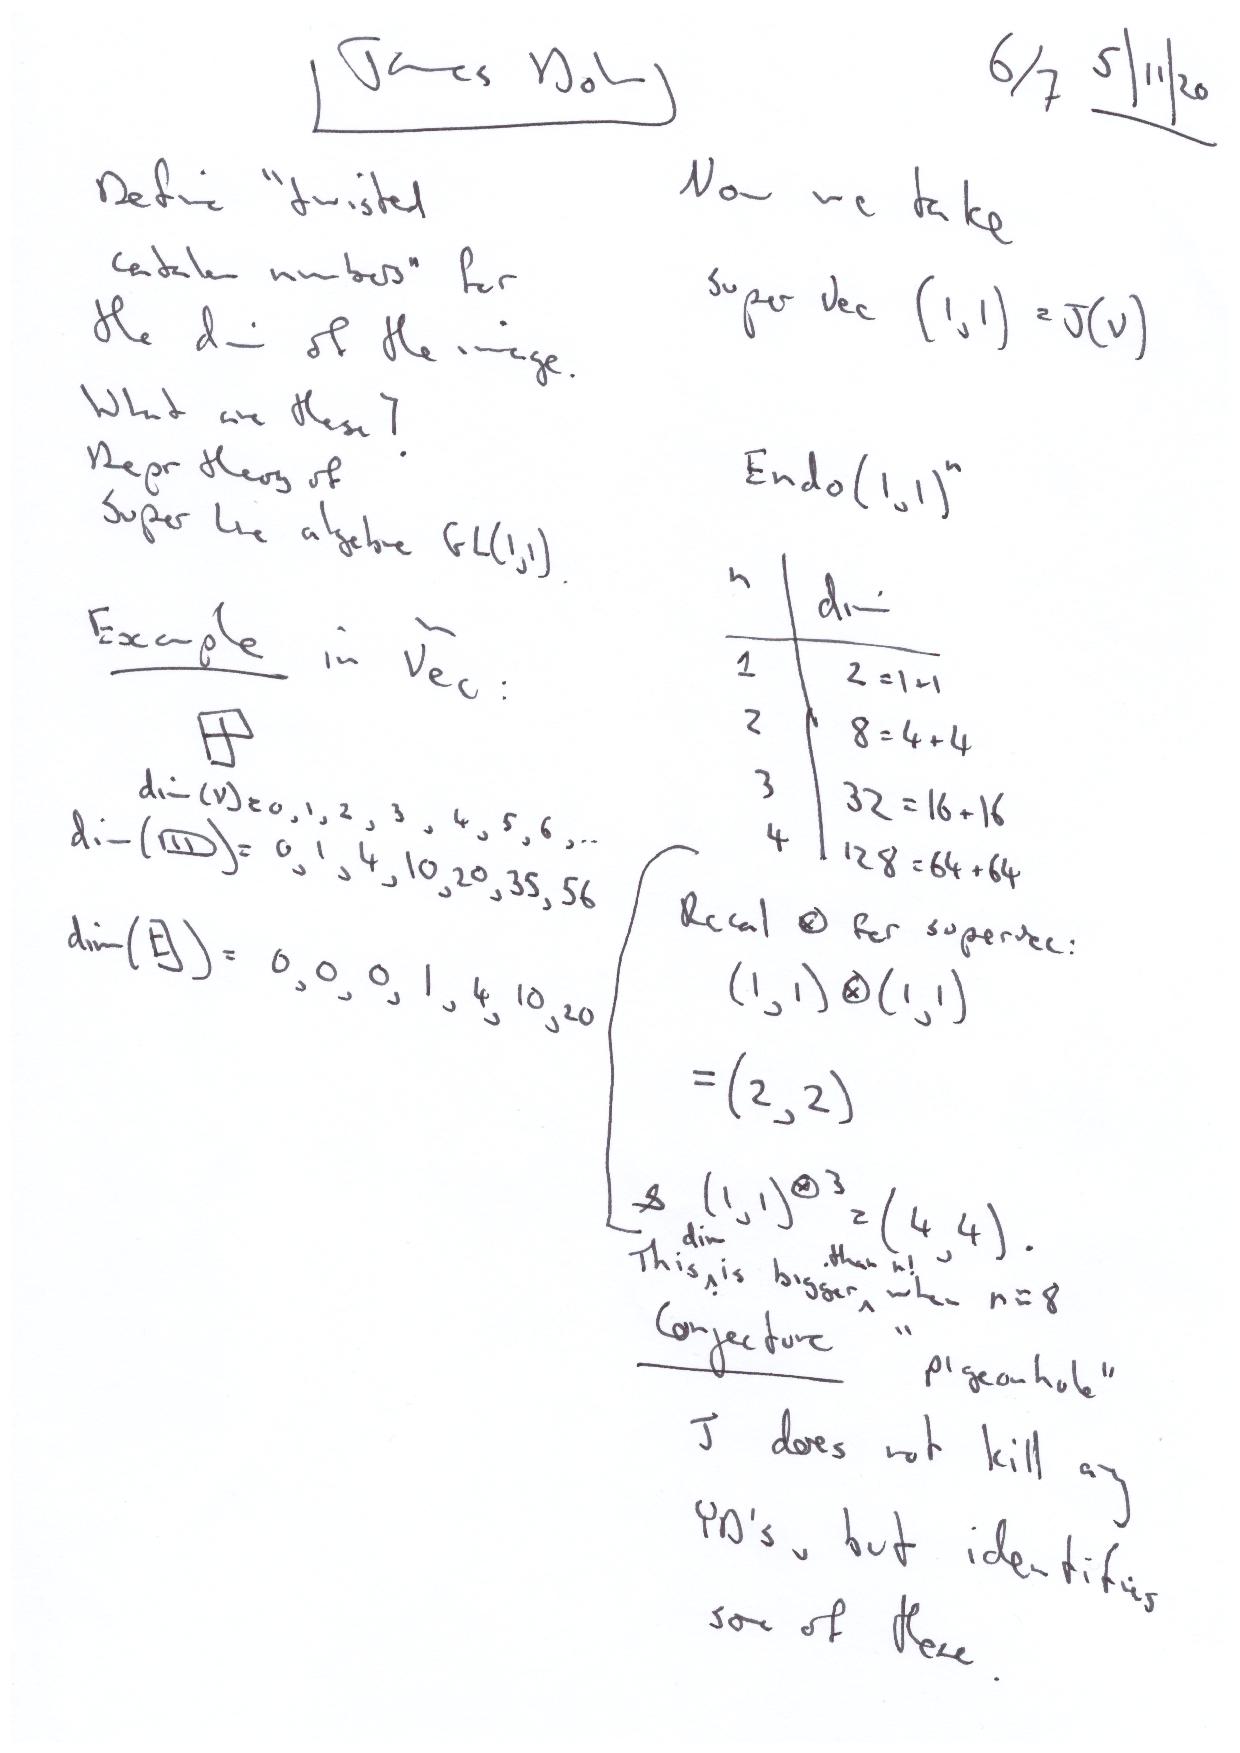 James Dol
6/7 5/11/20
Define "twisted
catalan numbers" for
the dim of the image.
What are these?
Repr theory of
Super Lie algebra GL(1,1).
Example in Vec:
dim(V)=0,1,2,3,4,5,6,...
dim( )= 0,1,4,10,20,35,56
dim( )= 0,0,0,1,4,10,20
Now we take
Super Vec (1,1) = J(V)
Endo(1,1)ⁿ
n dim
1 2=1+1
2 8=4+4
3 32=16+16
4 128=64+64
Recal ⊗ for supervec:
(1,1)⊗(1,1)
=(2,2)
& (1,1)^⊗3 = (4,4).
This dim is bigger than n! when n=8
Conjecture "pigeonhole"
J does not kill any
YD's, but identifies
some of these.